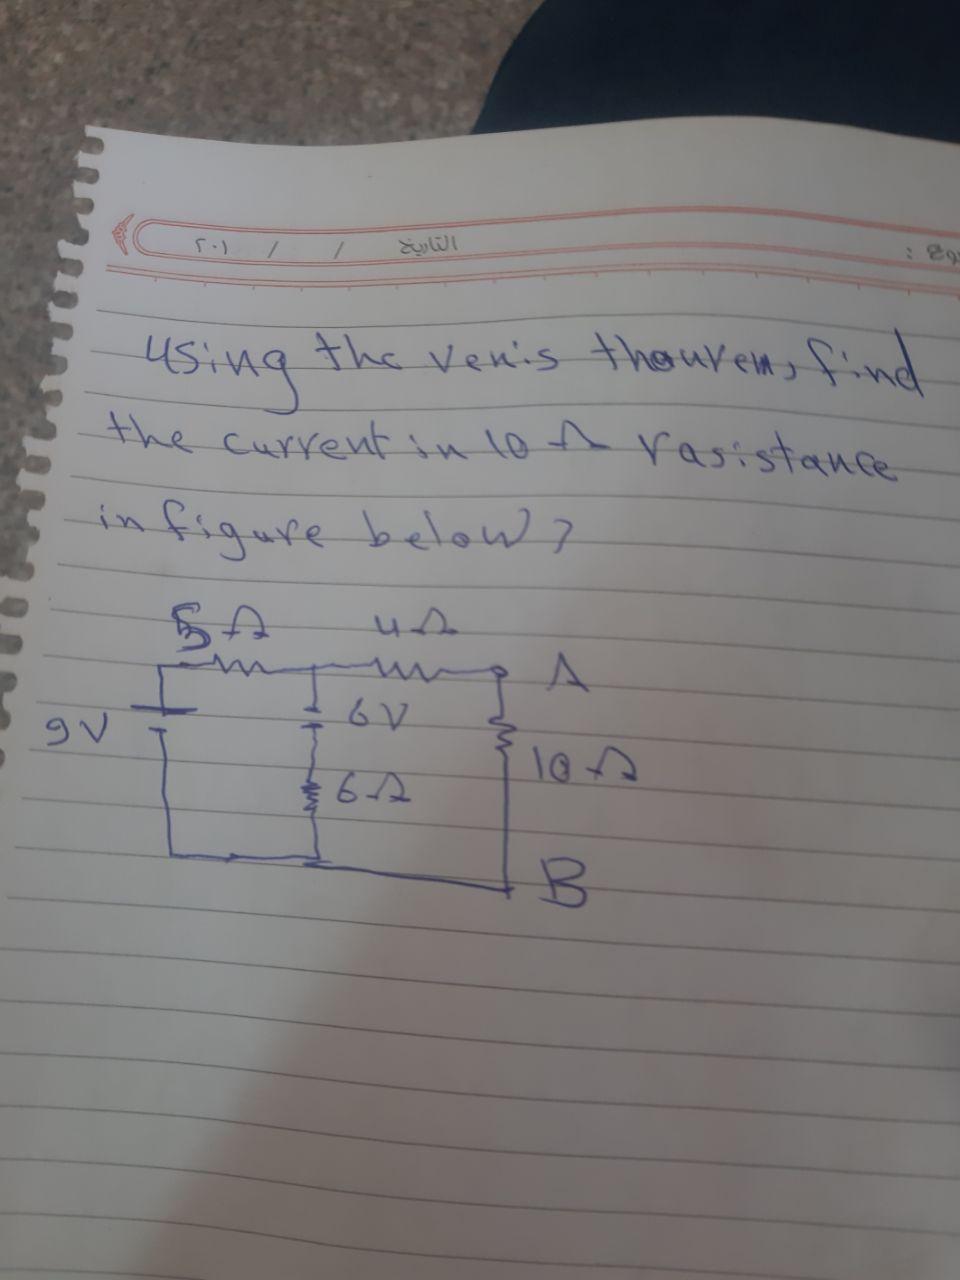 ٢٠١ / / التاريخ
using the ven's thourem, find
the current in 10 Ω rasistance
in figure below?
5Ω 4Ω
A
6V
9V
10Ω
6Ω
B